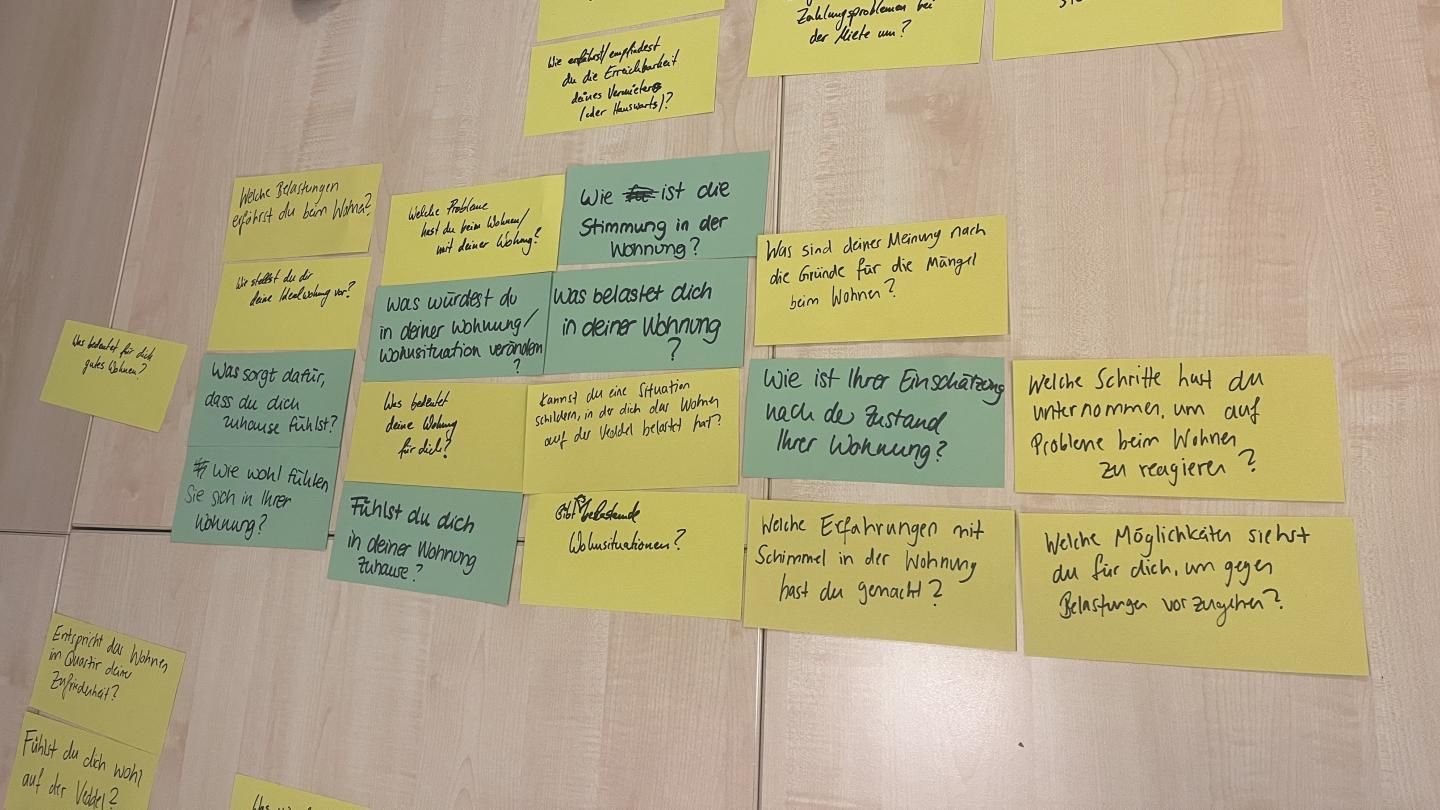 Zahlungsproblemen bei
der Miete um?
Wie erfährst/empfindest
du die Erreichbarkeit
deines Vermieters
(oder Hauswarts)?
Welche Belastungen
erfährst du beim Wohnen?
Welche Probleme
hast du beim Wohnen/
mit deiner Wohung?
Wie ist die
Stimmung in der
Wohnung?
Was sind deiner Meinung nach
die Gründe für die Mängel
beim Wohnen?
Wie stellst du dir
deine Idealwohung vor?
Was würdest du
in deiner Wohnung/
Wohnsituation verändern
?
Was belastet dich
in deiner Wohnung
?
Was bedeutet für dich
gutes Wohnen?
Was sorgt dafür,
dass du dich
zuhause fühlst?
Was bedeutet
deine Wohung
für dich?
Kannst du eine Situation
schildern, in der dich das Wohnen
auf der Veddel belastet hat?
Wie ist Ihrer Einschätzung
nach der Zustand
Ihrer Wohnung?
Welche Schritte hast du
unternommen, um auf
Probleme beim Wohnen
zu reagieren?
Wie wohl fühlen
Sie sich in Ihrer
Wohnung?
Fühlst du dich
in deiner Wohnung
zuhause?
Gibt belastende
Wohnsituationen?
Welche Erfahrungen mit
Schimmel in der Wohnung
hast du gemacht?
Welche Möglichkeiten siehst
du für dich, um gegen
Belastungen vorzugehen?
Entspricht das Wohnen
im Quartir deiner
Zufriedenheit?
Fühlst du dich wohl
auf der Veddel?